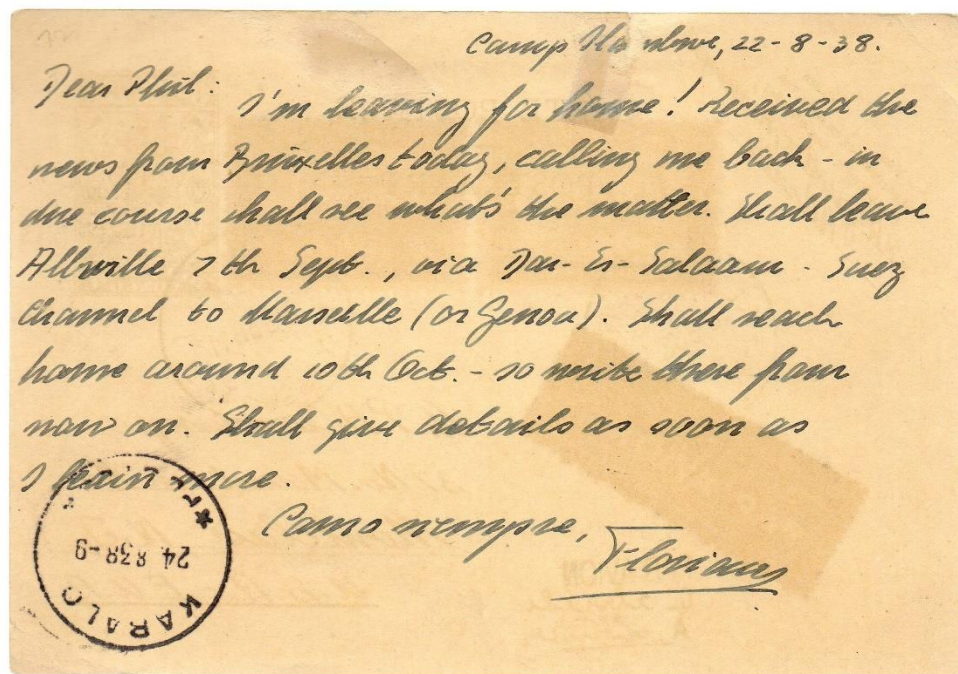 Camp 22-8-38.
Dear Phil:
I'm leaving for home! Received the
news from Bruxelles today, calling me back - in
due course shall see what's the matter. Shall leave
Albville 7th Sept., via Dar-Es-Salaam - Suez
Channel to Marseille (or Genoa). Shall reach
home around 10th Oct. - so write there from
now on. Shall give details as soon as
I learn more.
Como siempre,
KABALO
24.8.38-9